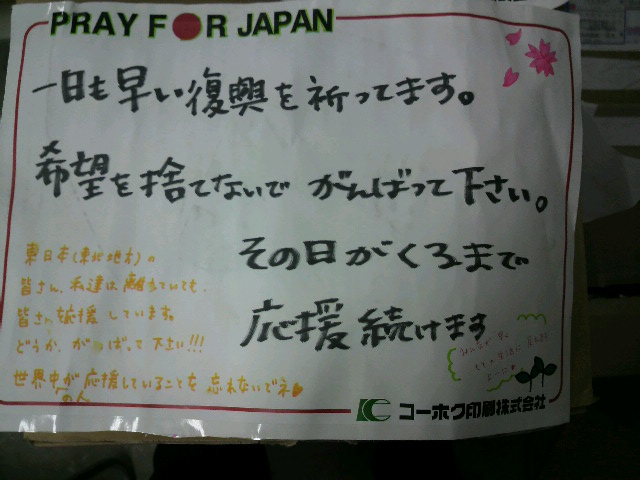 PRAY FOR JAPAN
一日も早い復興を祈ってます。
希望を捨てないで がんばって下さい。
その日がくるまで
応援続けます
東日本(東北地方)の
皆さん、私達は離れていても、
皆さんを応援しています。
どうか、がんばって下さい!!!
世界中の人が応援していることを忘れないでネ
コーホク印刷株式会社